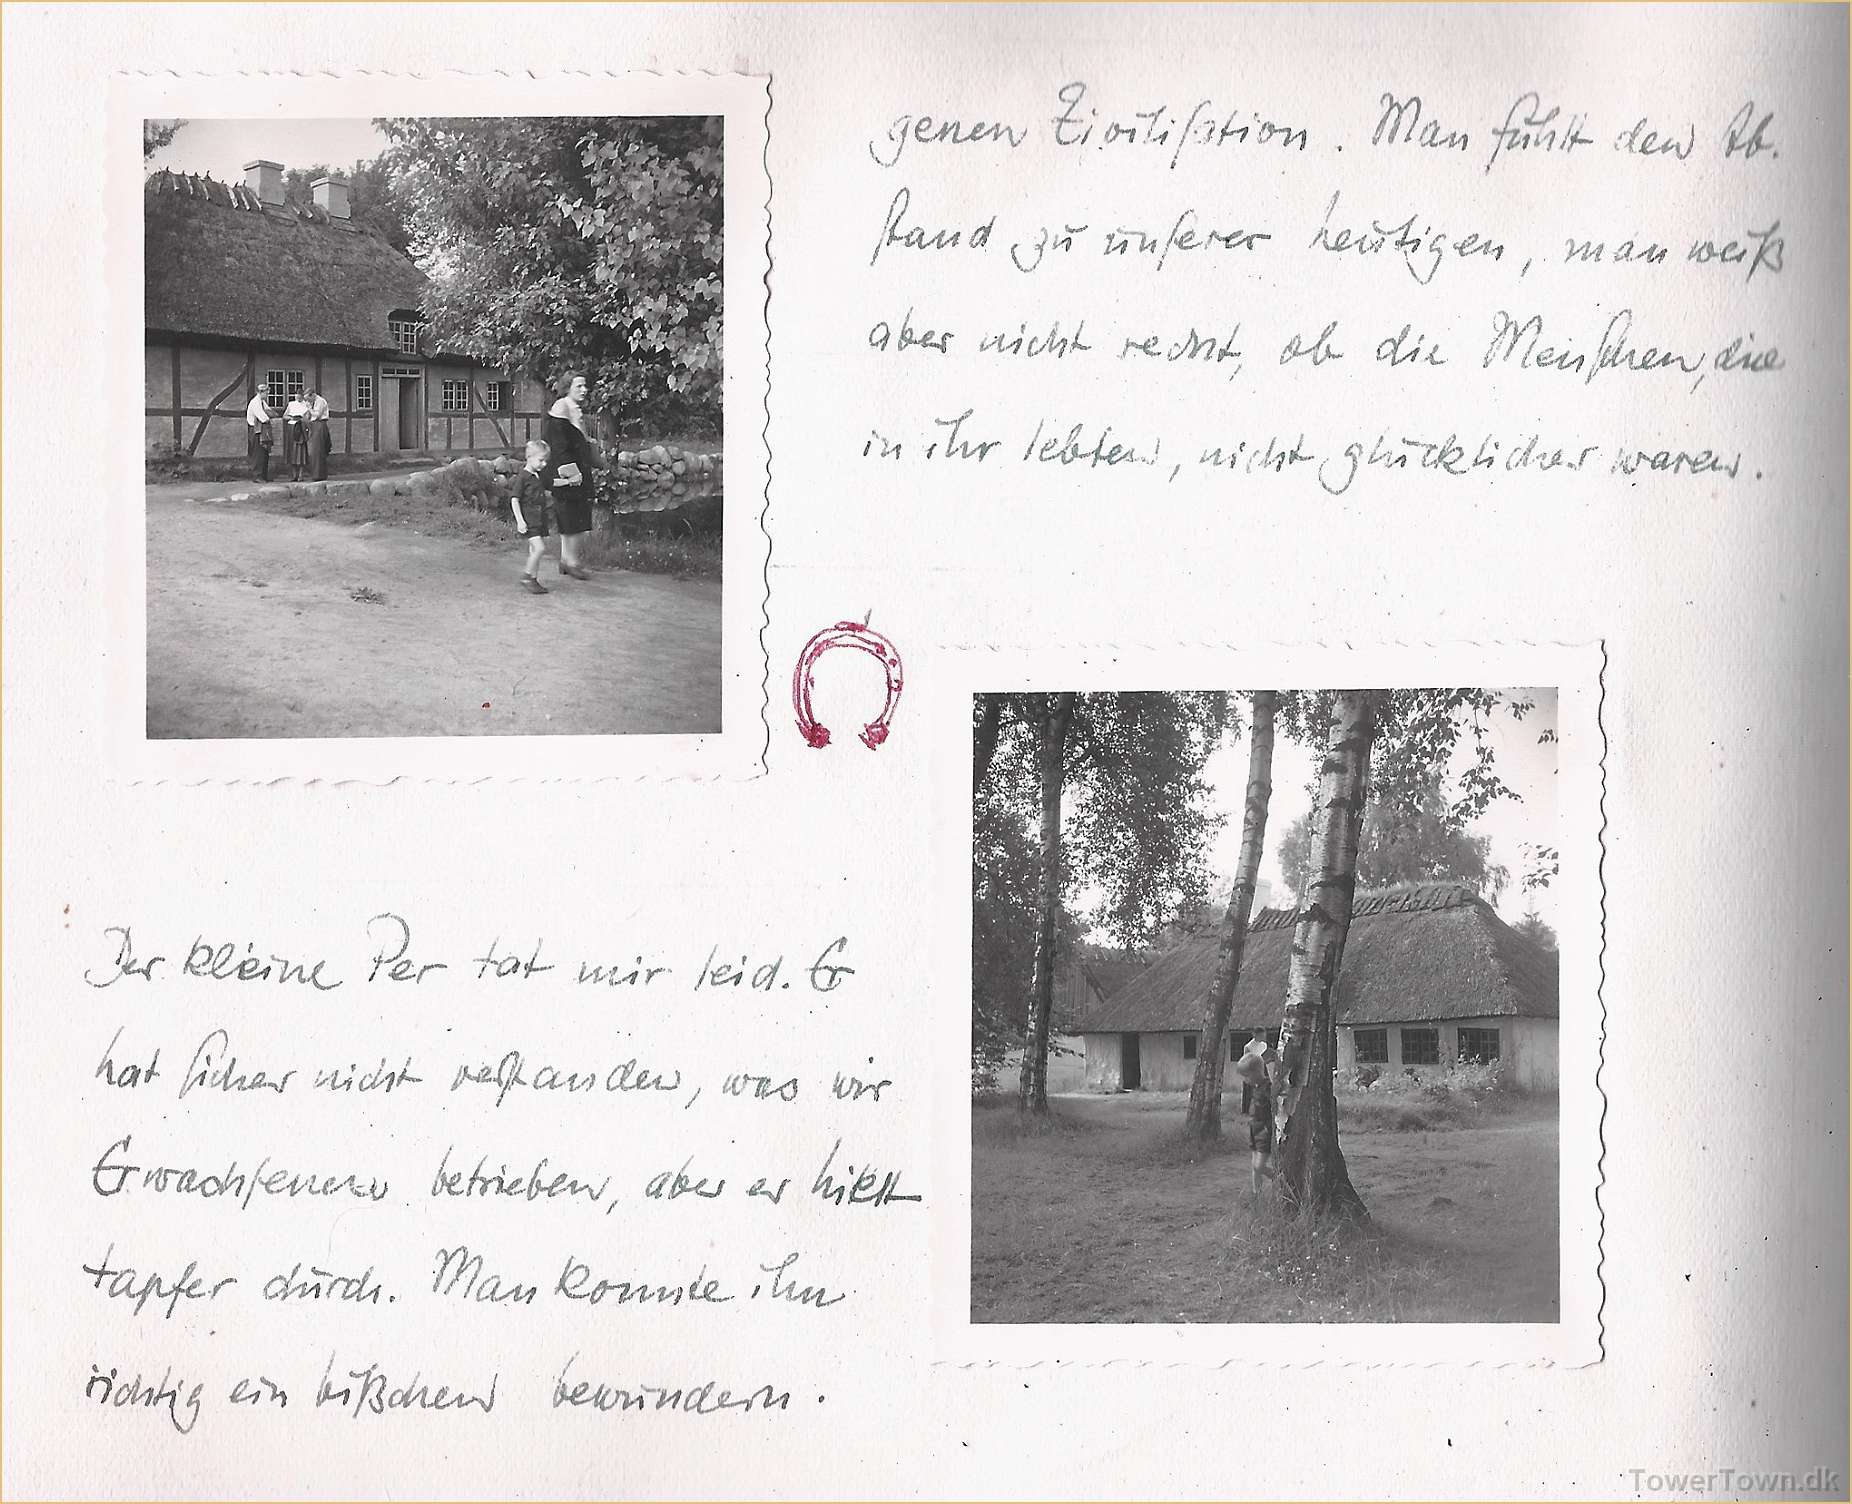 genen Zivilisation. Man fühlt den Ab-
stand zu unserer heutigen, man weiß
aber nicht recht, ob die Menschen, die
in ihr lebten, nicht glücklicher waren.
Der kleine Per tat mir leid. Er
hat sicher nicht verstanden, was wir
Erwachsenen betrieben, aber er hielt
tapfer durch. Man konnte ihn
richtig ein bißchen bewundern.
TowerTown.dk